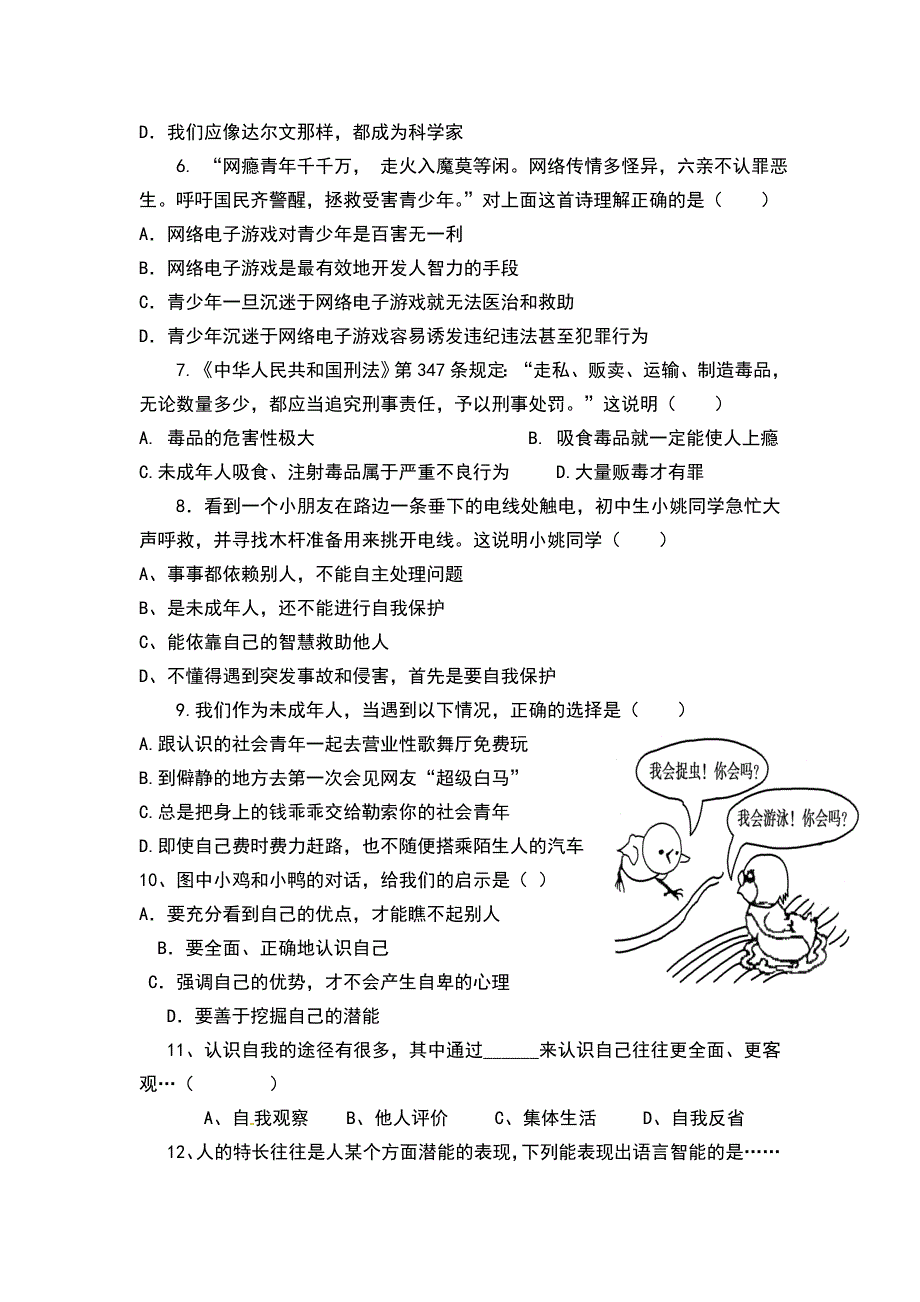 D．我们应像达尔文那样，都成为科学家
6. “网瘾青年千千万， 走火入魔莫等闲。网络传情多怪异，六亲不认罪恶
生。呼吁国民齐警醒，拯救受害青少年。”对上面这首诗理解正确的是（　　）
A．网络电子游戏对青少年是百害无一利
B．网络电子游戏是最有效地开发人智力的手段
C．青少年一旦沉迷于网络电子游戏就无法医治和救助
D．青少年沉迷于网络电子游戏容易诱发违纪违法甚至犯罪行为
7.《中华人民共和国刑法》第 347 条规定：“走私、贩卖、运输、制造毒品，
无论数量多少，都应当追究刑事责任，予以刑事处罚。”这说明（　　）
A. 毒品的危害性极大　　B. 吸食毒品就一定能使人上瘾
C.未成年人吸食、注射毒品属于严重不良行为　　D.大量贩毒才有罪
8．看到一个小朋友在路边一条垂下的电线处触电，初中生小姚同学急忙大
声呼救，并寻找木杆准备用来挑开电线。这说明小姚同学（　　）
A、事事都依赖别人，不能自主处理问题
B、是未成年人，还不能进行自我保护
C、能依靠自己的智慧救助他人
D、不懂得遇到突发事故和侵害，首先是要自我保护
9.我们作为未成年人，当遇到以下情况，正确的选择是（　　）
A.跟认识的社会青年一起去营业性歌舞厅免费玩
B.到僻静的地方去第一次会见网友“超级白马”
C.总是把身上的钱乖乖交给勒索你的社会青年
D.即使自己费时费力赶路，也不随便搭乘陌生人的汽车
我会捉虫！你会吗？
我会游泳！你会吗？
10、图中小鸡和小鸭的对话，给我们的启示是（ ）
A．要充分看到自己的优点，才能瞧不起别人
B．要全面、正确地认识自己
C．强调自己的优势，才不会产生自卑的心理
D．要善于挖掘自己的潜能
11、认识自我的途径有很多，其中通过______来认识自己往往更全面、更客
观…（　　）
A、自我观察　　B、他人评价　　C、集体生活　　D、自我反省
12、人的特长往往是人某个方面潜能的表现，下列能表现出语言智能的是……